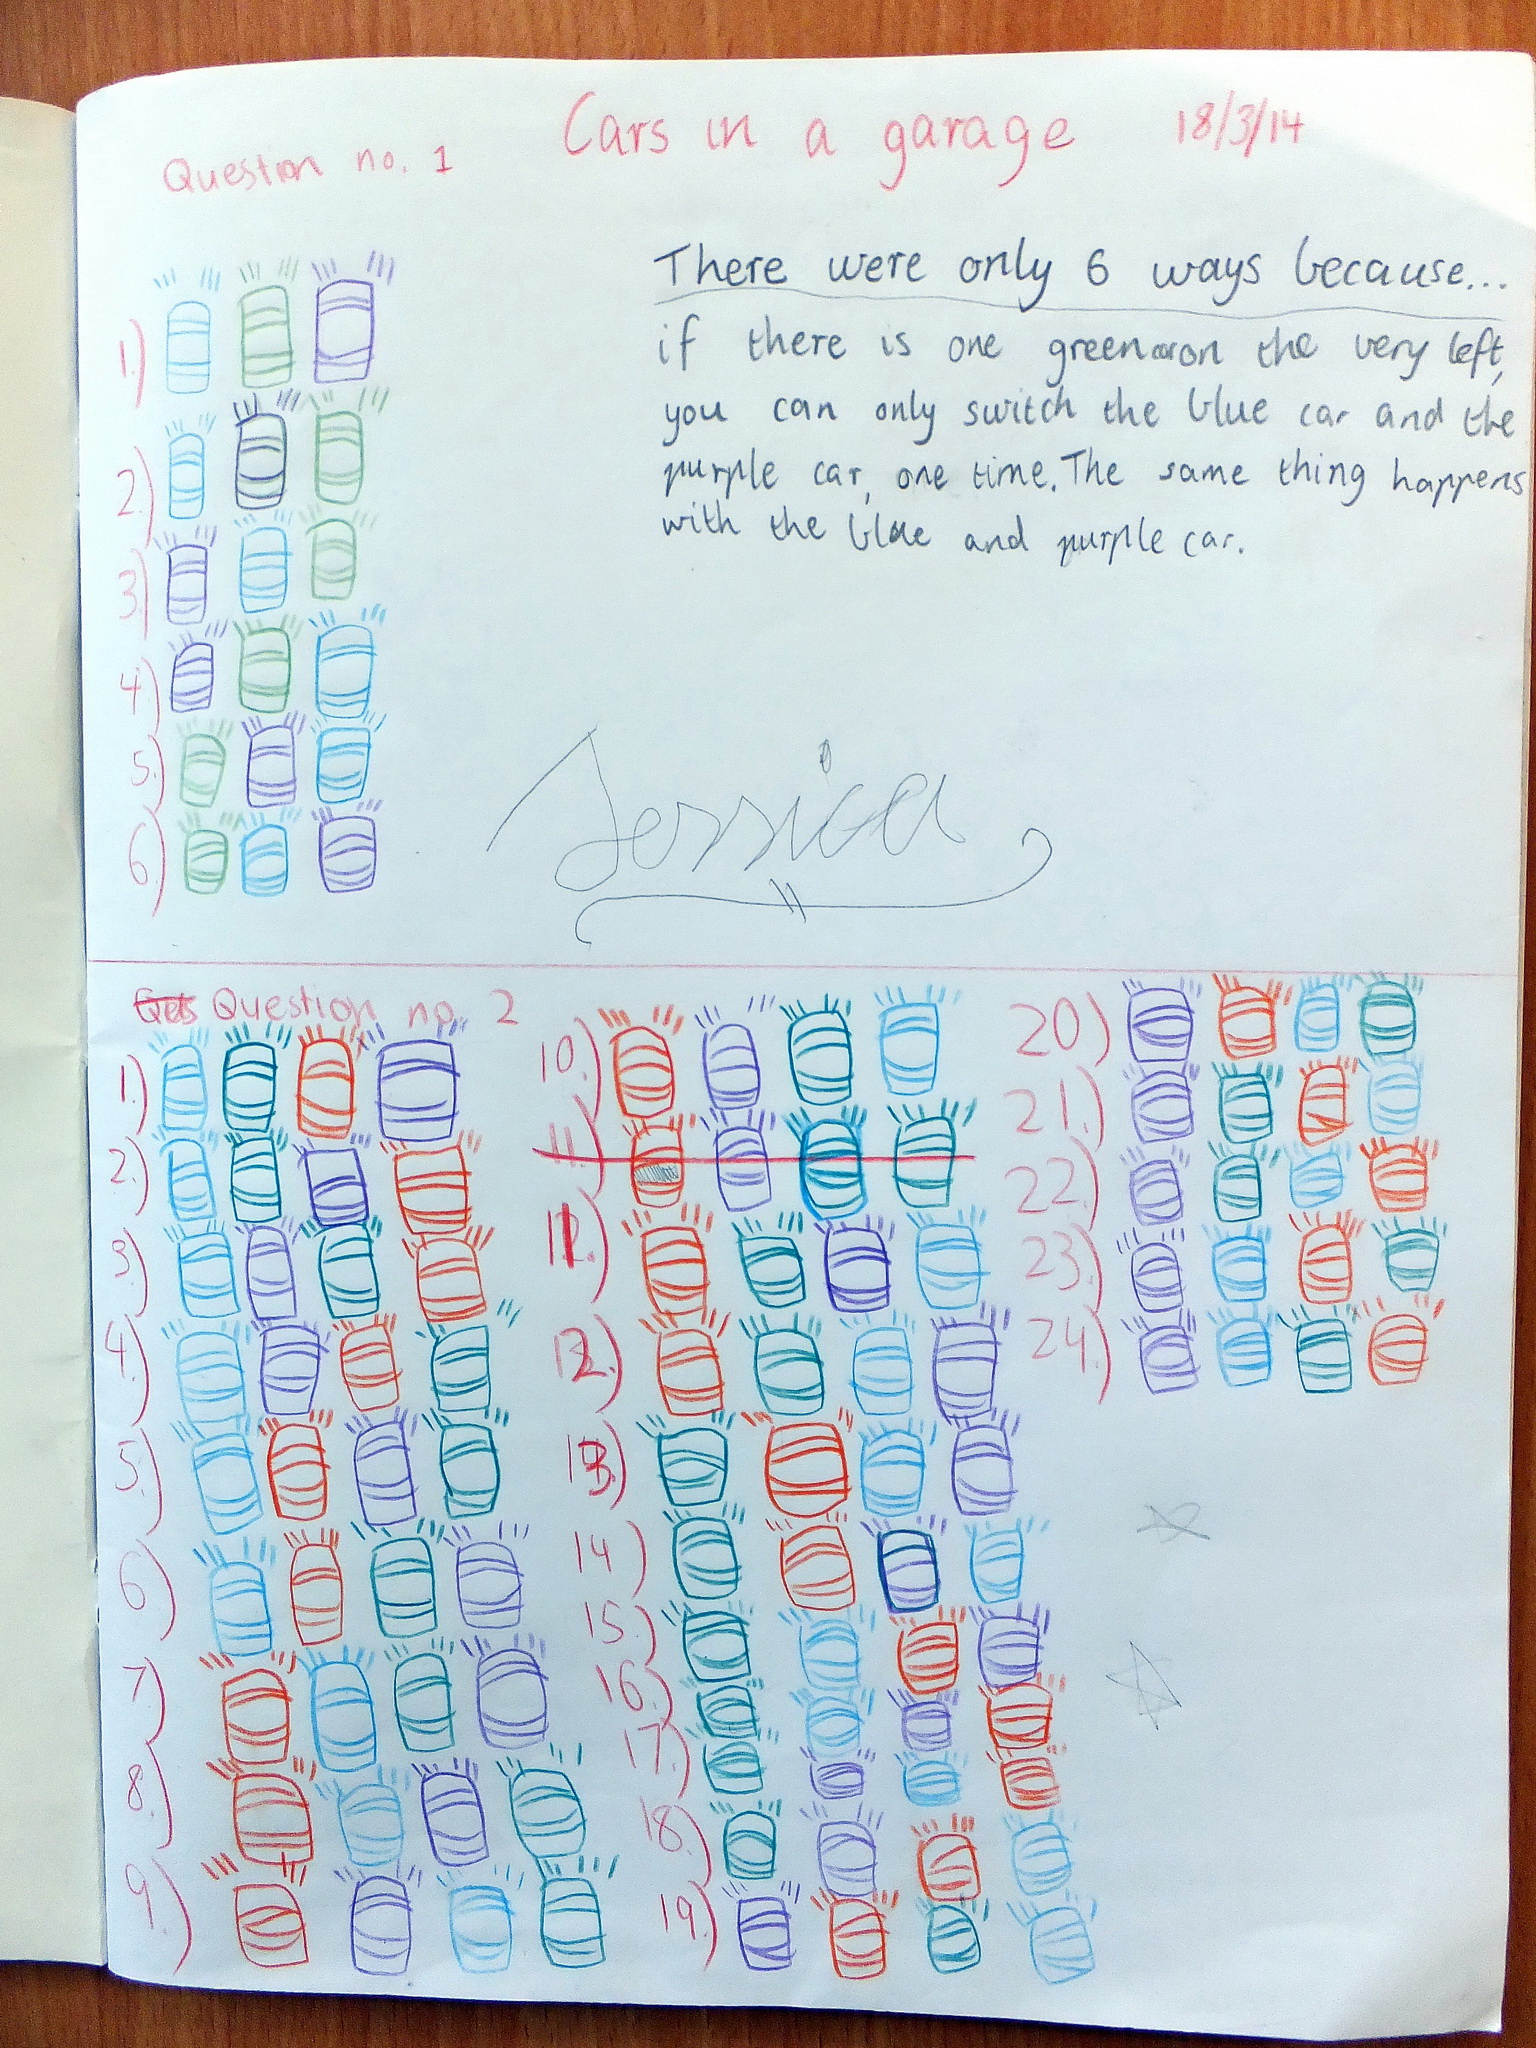 Cars in a garage 18/3/14
Question no. 1
There were only 6 ways because...
if there is one green on the very left,
you can only switch the blue car and the
purple car, one time. The same thing happens
with the blue and purple car.
1.)
2.)
3.)
4.)
5.)
6.)
Jessica
Question no. 2
1.)
2.)
3.)
4.)
5.)
6.)
7.)
8.)
9.)
10.)
11.)
11.)
12.)
13.)
14.)
15.)
16.)
17.)
18.)
19.)
20.)
21.)
22.)
23.)
24.)